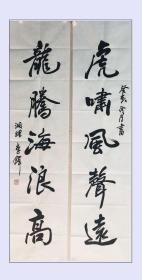 虎啸風聲遠
癸亥
月書
龍騰海浪高